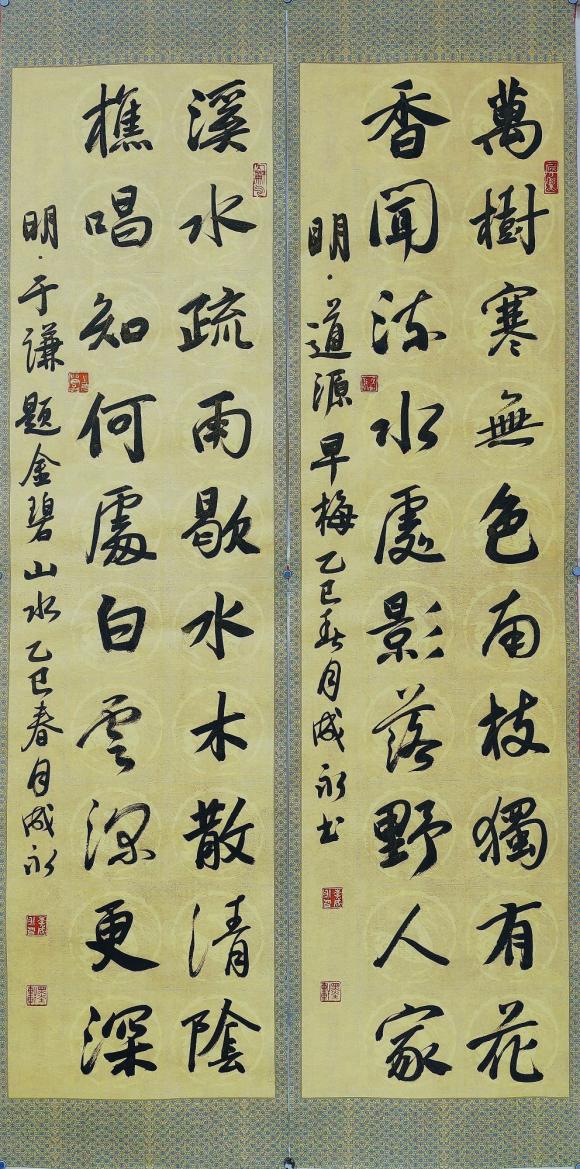 萬樹寒無色南枝獨有花
香聞流水處影落野人家
明·道源早梅乙巳春月成永书
溪水疏雨歇水木散清陰
樵唱知何處白雲深更深
明·于谦題金碧山水乙巳春月成永